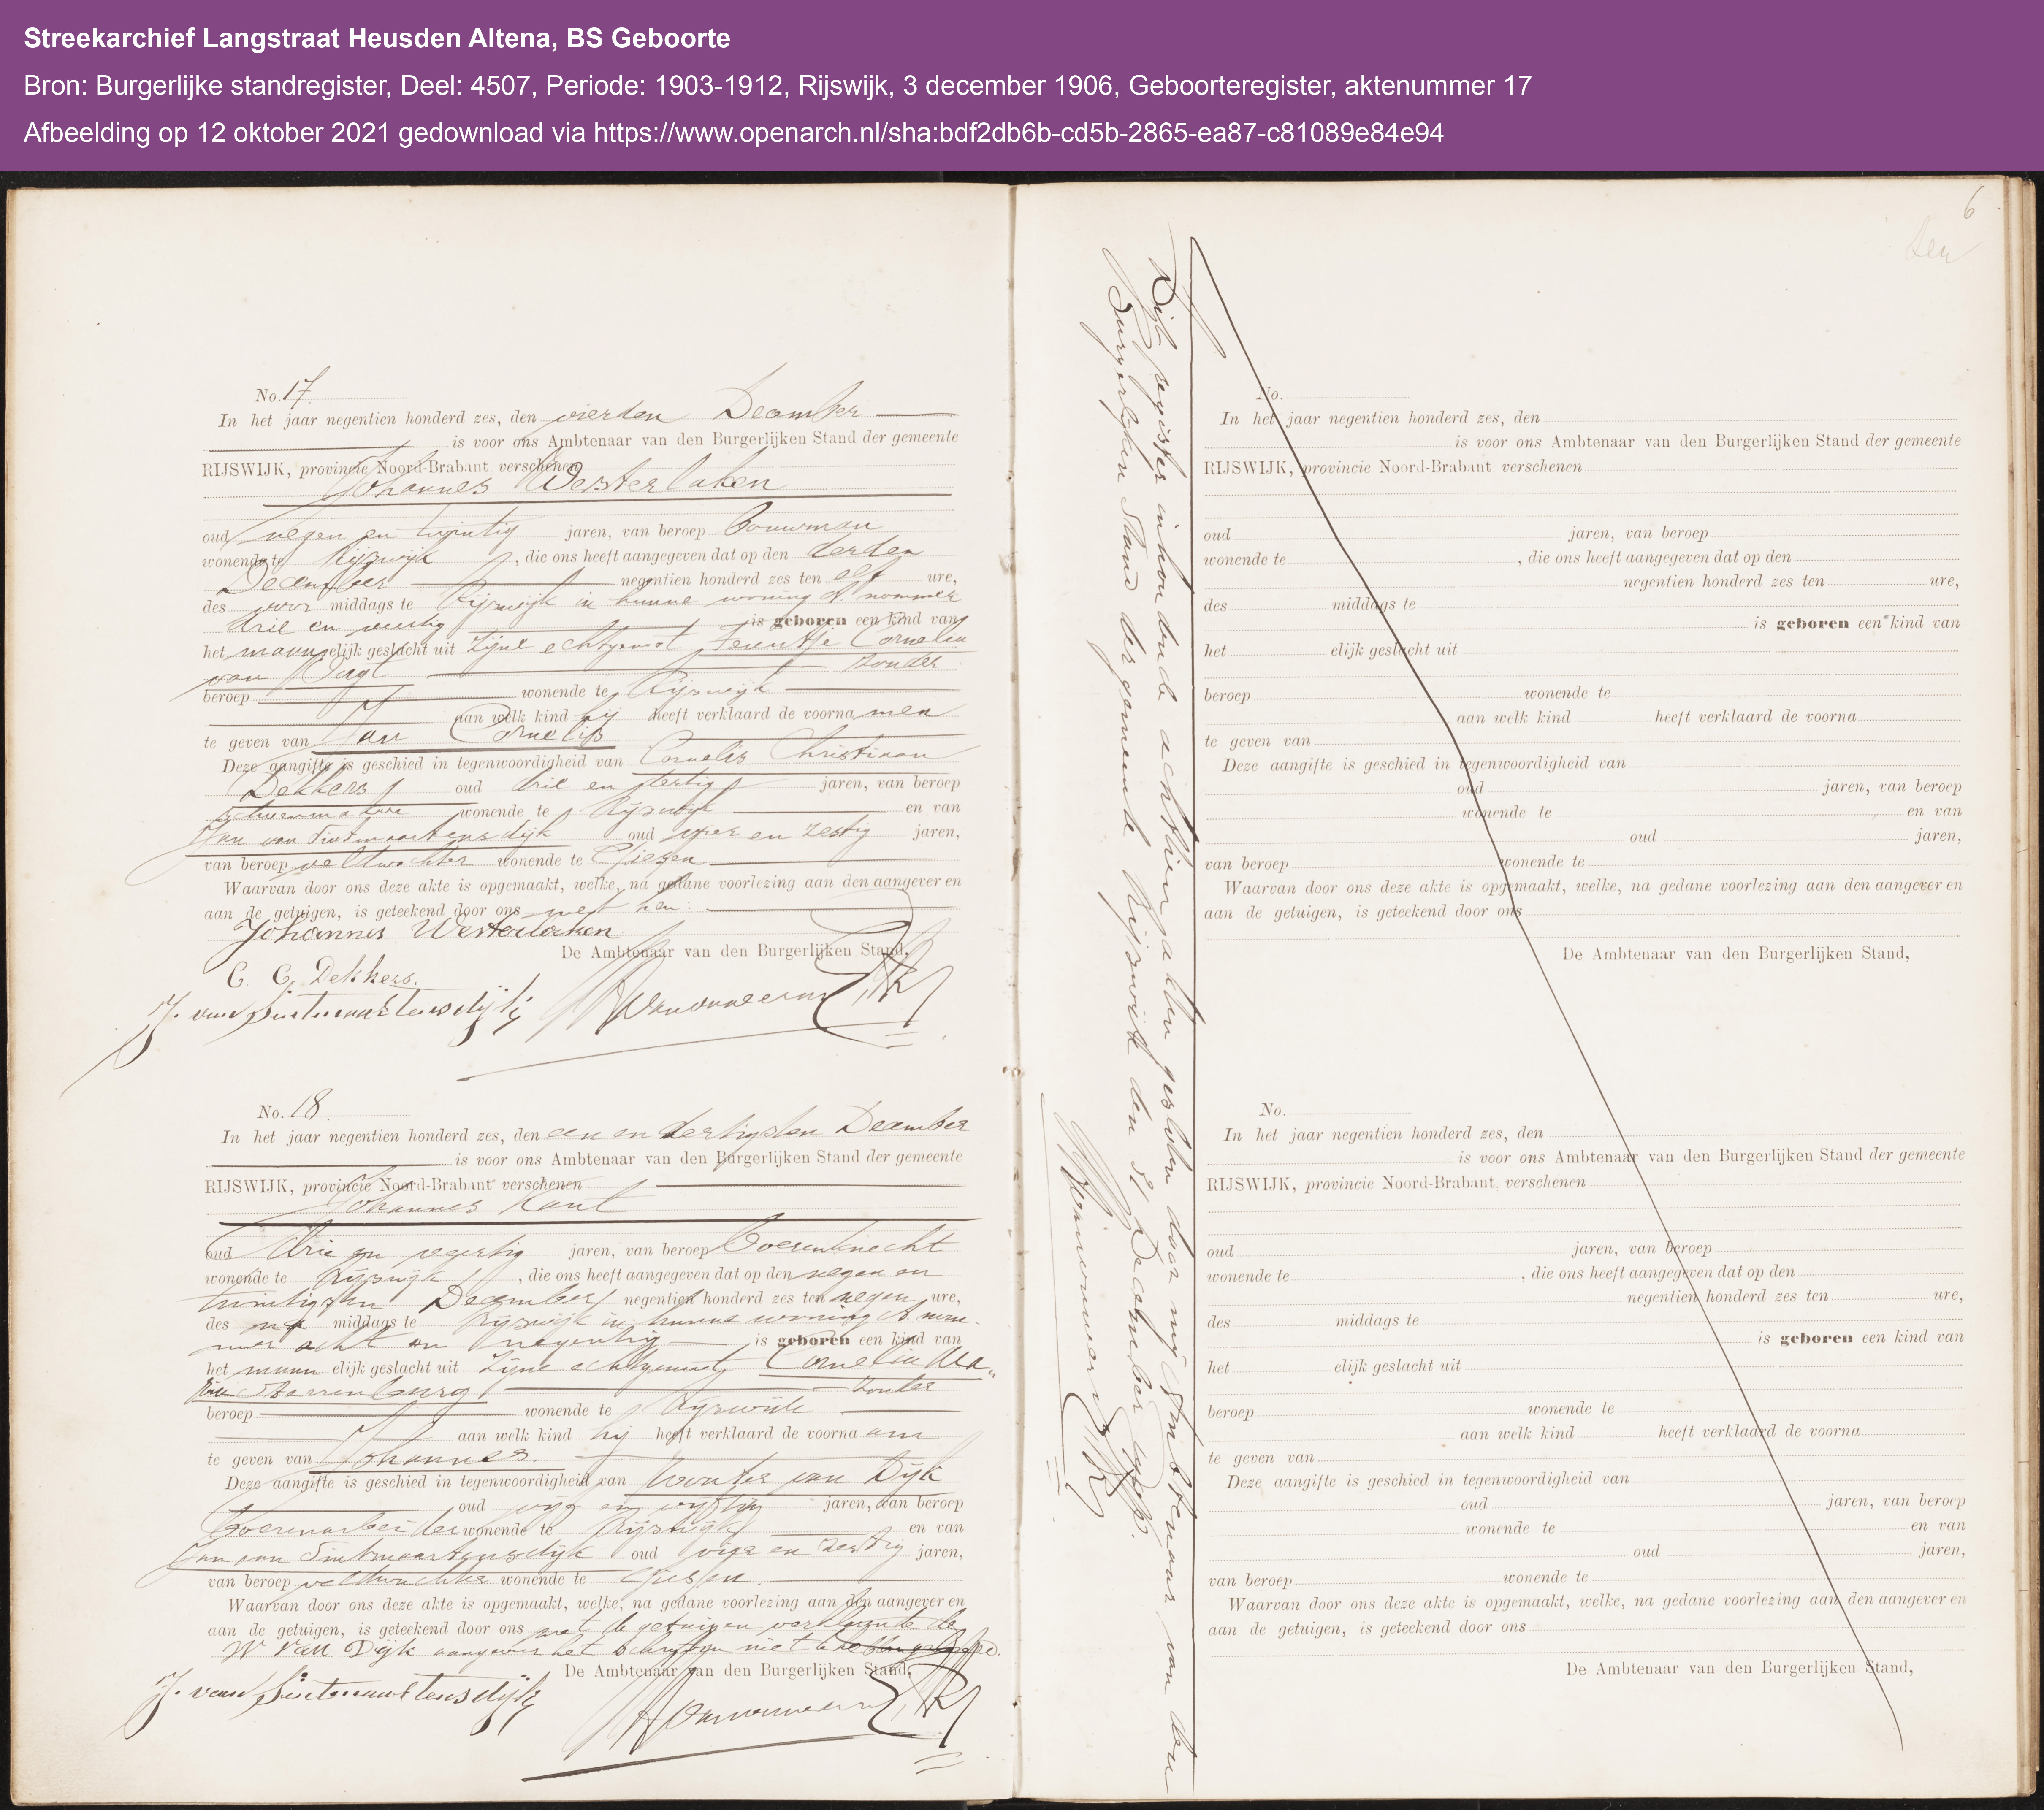 Streekarchief Langstraat Heusden Altena, BS Geboorte
Bron: Burgerlijke standregister, Deel: 4507, Periode: 1903-1912, Rijswijk, 3 december 1906, Geboorteregister, aktenummer 17
Afbeelding op 12 oktober 2021 gedownload via https://www.openarch.nl/sha:bdf2db6b-cd5b-2865-ea87-c81089e84e94
No. 17
In het jaar negentien honderd zes, den vierden December
is voor ons Ambtenaar van den Burgerlijken Stand der gemeente
RIJSWIJK, provincie Noord-Brabant verschenen
Johannes Westerlaken
oud negen en twintig jaren, van beroep Bouwman
wonende te Rijswijk, die ons heeft aangegeven dat op den derden
December negentien honderd zes ten elf ure,
des voor middags te Rijswijk in hunne woning A nommer
drie en veertig is geboren een kind van
het mann elijk geslacht uit zijne echtgenoot Teuntje Cornelia
van zonder
beroep wonende te Rijswijk
aan welk kind hij heeft verklaard de voorna men
te geven van Jan Cornelis
Deze aangifte is geschied in tegenwoordigheid van Cornelis Christiaan
Dekkers oud drie en dertig jaren, van beroep
wonende te Rijswijk en van
Jan van Sintmaartensdijk oud vier en zestig jaren,
van beroep veldwachter wonende te Giesen
Waarvan door ons deze akte is opgemaakt, welke, na gedane voorlezing aan den aangever en
aan de getuigen, is geteekend door ons met hen.
Johannes Westerlaken
De Ambtenaar van den Burgerlijken Stand,
C. C. Dekkers.
J. van Sintmaartensdijk
No. 18
In het jaar negentien honderd zes, den een en dertigsten December
is voor ons Ambtenaar van den Burgerlijken Stand der gemeente
RIJSWIJK, provincie Noord-Brabant verschenen
Johannes Kant
oud drie en veertig jaren, van beroep boerenknecht
wonende te Rijswijk, die ons heeft aangegeven dat op den negen en
twintigsten December negentien honderd zes ten negen ure,
des na middags te Rijswijk in hunne woning A num-
mer acht en negentig is geboren een kind van
het mann elijk geslacht uit zijne echtgenoot Cornelia Ma-
Starrenburg zonder
beroep wonende te Rijswijk
aan welk kind hij heeft verklaard de voorna am
te geven van Johannes.
Deze aangifte is geschied in tegenwoordigheid van Wouter van Dijk
oud vijf en vijftig jaren, van beroep
boerenarbeider wonende te Rijswijk en van
Jan van Sintmaartensdijk oud vier en zestig jaren,
van beroep veldwachter wonende te Giesen.
Waarvan door ons deze akte is opgemaakt, welke, na gedane voorlezing aan den aangever en
aan de getuigen, is geteekend door ons met de getuigen verklarende de
W van Dijk aangever het schrijven niet te
De Ambtenaar van den Burgerlijken Stand,
J. van Sintmaartensdijk
Dit register inhoudende achttien akten gesloten door mij Ambtenaar van den
Burgerlijken Stand der gemeente Rijswijk den 31 December 1906.
6
No.
In het jaar negentien honderd zes, den
is voor ons Ambtenaar van den Burgerlijken Stand der gemeente
RIJSWIJK, provincie Noord-Brabant verschenen
oud jaren, van beroep
wonende te , die ons heeft aangegeven dat op den
negentien honderd zes ten ure,
des middags te
is geboren een kind van
het elijk geslacht uit
beroep wonende te
aan welk kind heeft verklaard de voorna
te geven van
Deze aangifte is geschied in tegenwoordigheid van
oud jaren, van beroep
wonende te en van
oud jaren,
van beroep wonende te
Waarvan door ons deze akte is opgemaakt, welke, na gedane voorlezing aan den aangever en
aan de getuigen, is geteekend door ons
De Ambtenaar van den Burgerlijken Stand,
No.
In het jaar negentien honderd zes, den
is voor ons Ambtenaar van den Burgerlijken Stand der gemeente
RIJSWIJK, provincie Noord-Brabant, verschenen
oud jaren, van beroep
wonende te , die ons heeft aangegeven dat op den
negentien honderd zes ten ure,
des middags te
is geboren een kind van
het elijk geslacht uit
beroep wonende te
aan welk kind heeft verklaard de voorna
te geven van
Deze aangifte is geschied in tegenwoordigheid van
oud jaren, van beroep
wonende te en van
oud jaren,
van beroep wonende te
Waarvan door ons deze akte is opgemaakt, welke, na gedane voorlezing aan den aangever en
aan de getuigen, is geteekend door ons
De Ambtenaar van den Burgerlijken Stand,